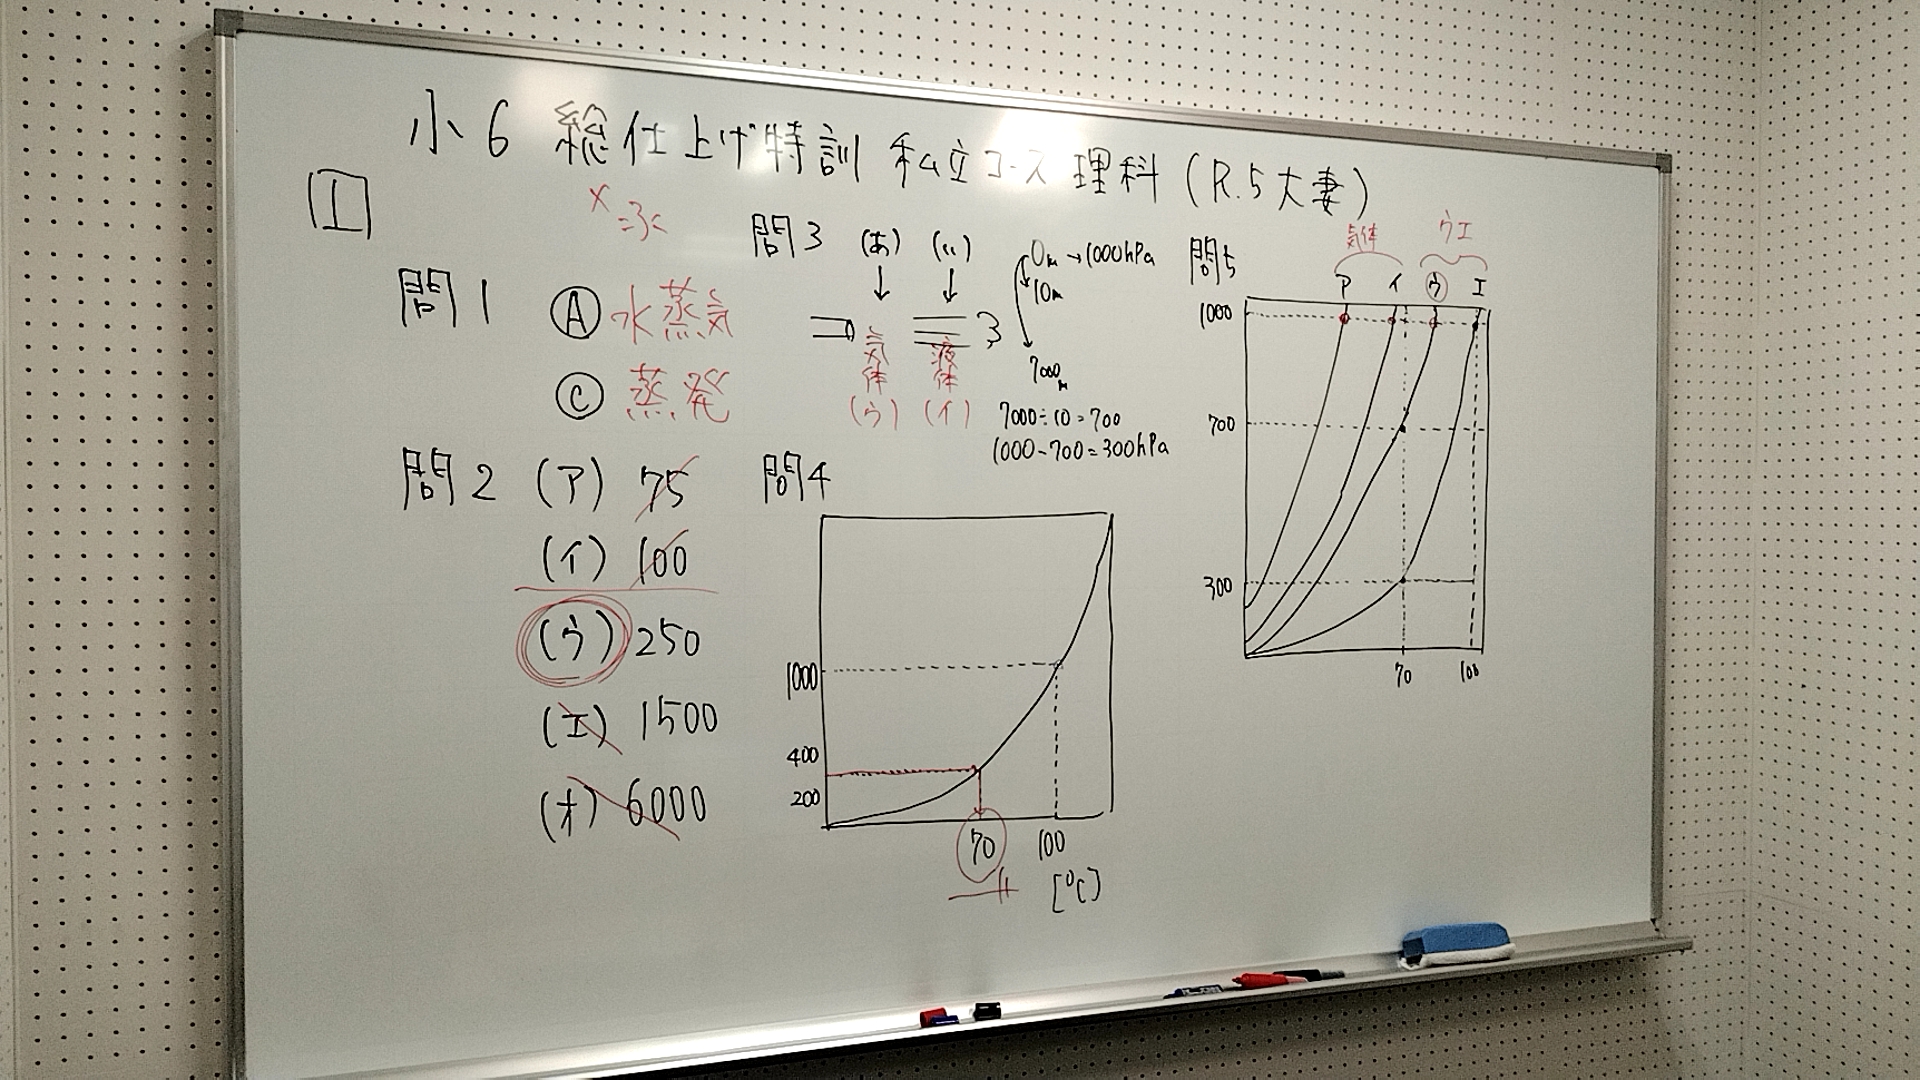 小6 総仕上げ特訓 私立コース 理科 (R.5大妻)
1
問1 Ⓐ 水蒸気
Ⓒ 蒸発
問2 (ア) 75
(イ) 100
(ウ) 250
(エ) 1500
(オ) 6000
問3 (あ) (い)
↓ ↓
気体 液体
(ウ) (イ)
0m→1000hPa
10m
7000m
7000÷10=700
1000-700=300hPa
問4
1000
400
200
70 100
[℃]
問5
気体 ウエ
ア イ ウ エ
1000
700
300
70 100